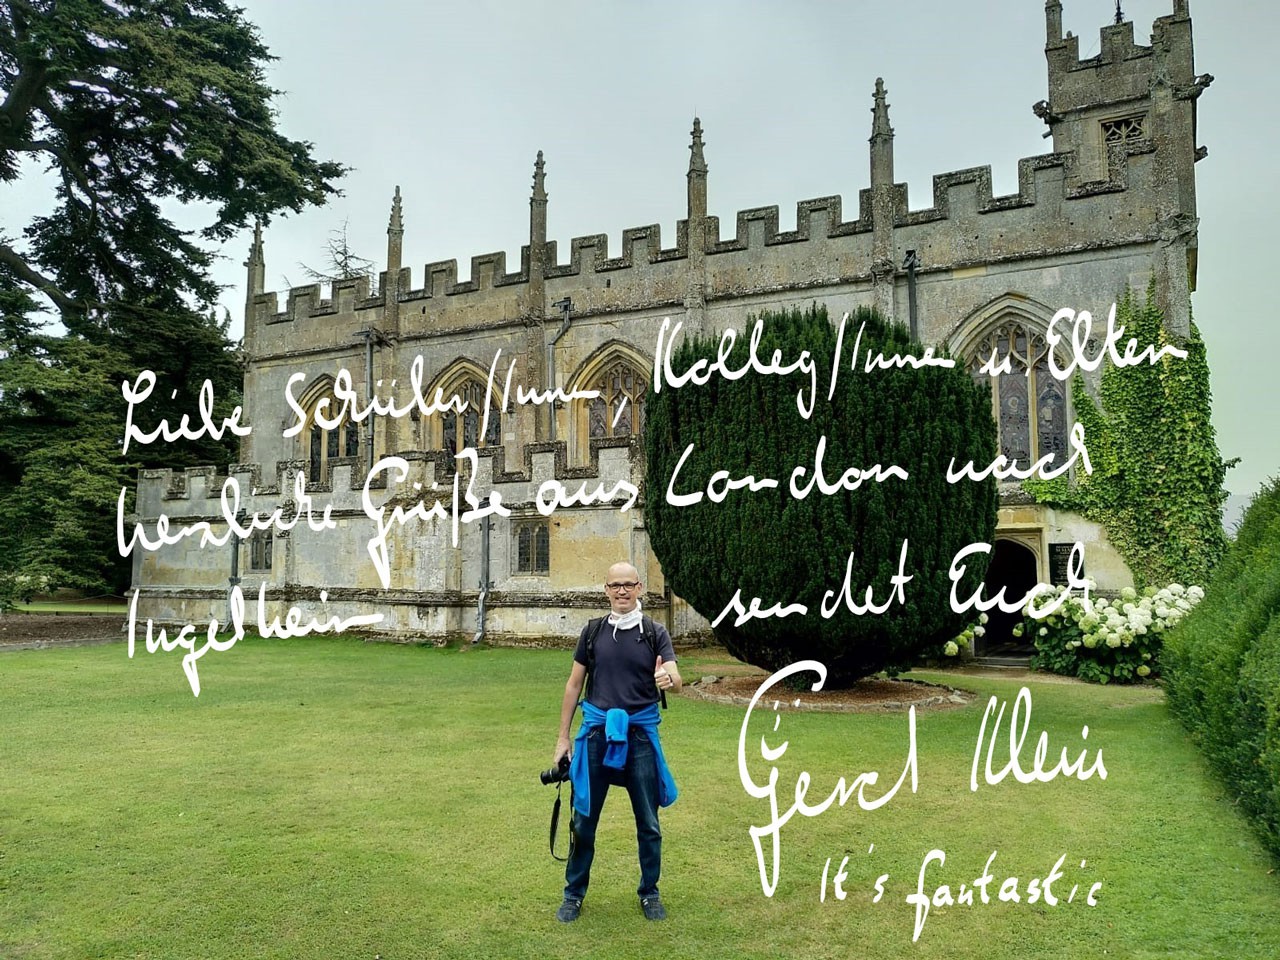 Liebe Schüler/Innen, Kolleg/Innen u Eltern
herzliche Grüße aus London nach
Ingelheim sendet Euch
Gerd Klein
It's fantastic